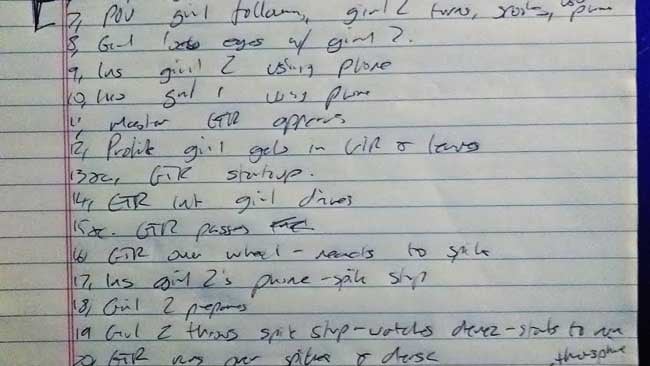 7, POV girl follows, girl 2 turns, phone
8, Girl eyes w/ girl 2.
9, Ins girl 2 using phone
10, Ins girl 1 using phone
11, Master GTR appears
12, Profile girl gets in GTR &
13 GTR startup.
14, GTR Int girl drives
15 GTR passes
16 GTR over wheel - reacts to spike
17, Ins girl 2's phone - spike strip
18, Girl 2 prepares
19 Girl 2 throws spike strip - watches - starts to run
20, GTR runs over spikes &